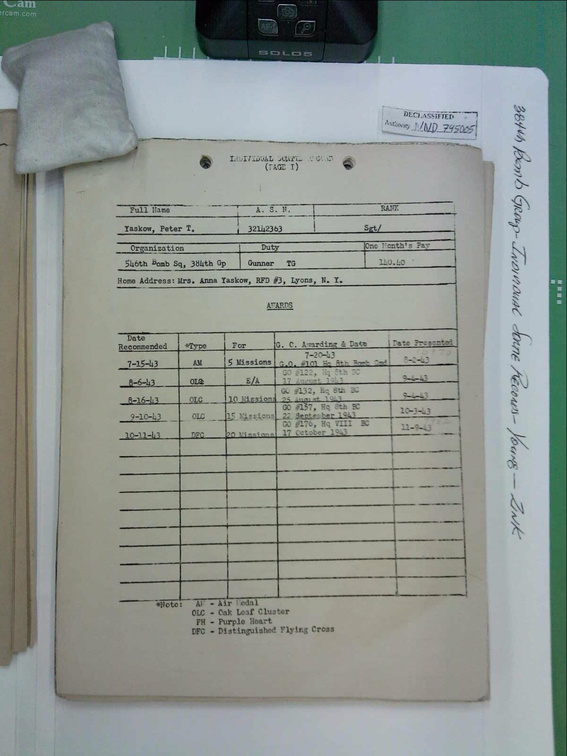 Cam
rcam.com
SOLO8
DECLASSIFIED
Authority NND 745005
384th Bomb Group - Individual Sortie Record - Young - Zink
INDIVIDUAL
(PAGE I)
Full Name A. S. N. RANK
Yaskow, Peter T. 32142363 Sgt/
Organization Duty One Month's Pay
546th Bomb Sq, 384th Gp Gunner TG 140.40
Home Address: Mrs. Anna Yaskow, RFD #3, Lyons, N. Y.
AWARDS
Date Recommended *Type For G. C. Awarding & Date Date Presented
7-20-43
7-15-43 AM 5 Missions G.O. #101 Hq 8th Bomb Cmd 8-2-43
GO #123, Hq 8th BC
8-6-43 OLC E/A 17 August 1943 9-4-43
GO #132, Hq 8th BC
8-16-43 OLC 10 Missions 25 August 1943 9-4-43
GO #157, Hq 8th BC
9-10-43 OLC 15 Missions 22 September 1943 10-3-43
GO #176, Hq VIII BC
10-11-43 DFC 20 Missions 17 October 1943 11-9-43
*Note: AM - Air Medal
OLC - Oak Leaf Cluster
PH - Purple Heart
DFC - Distinguished Flying Cross